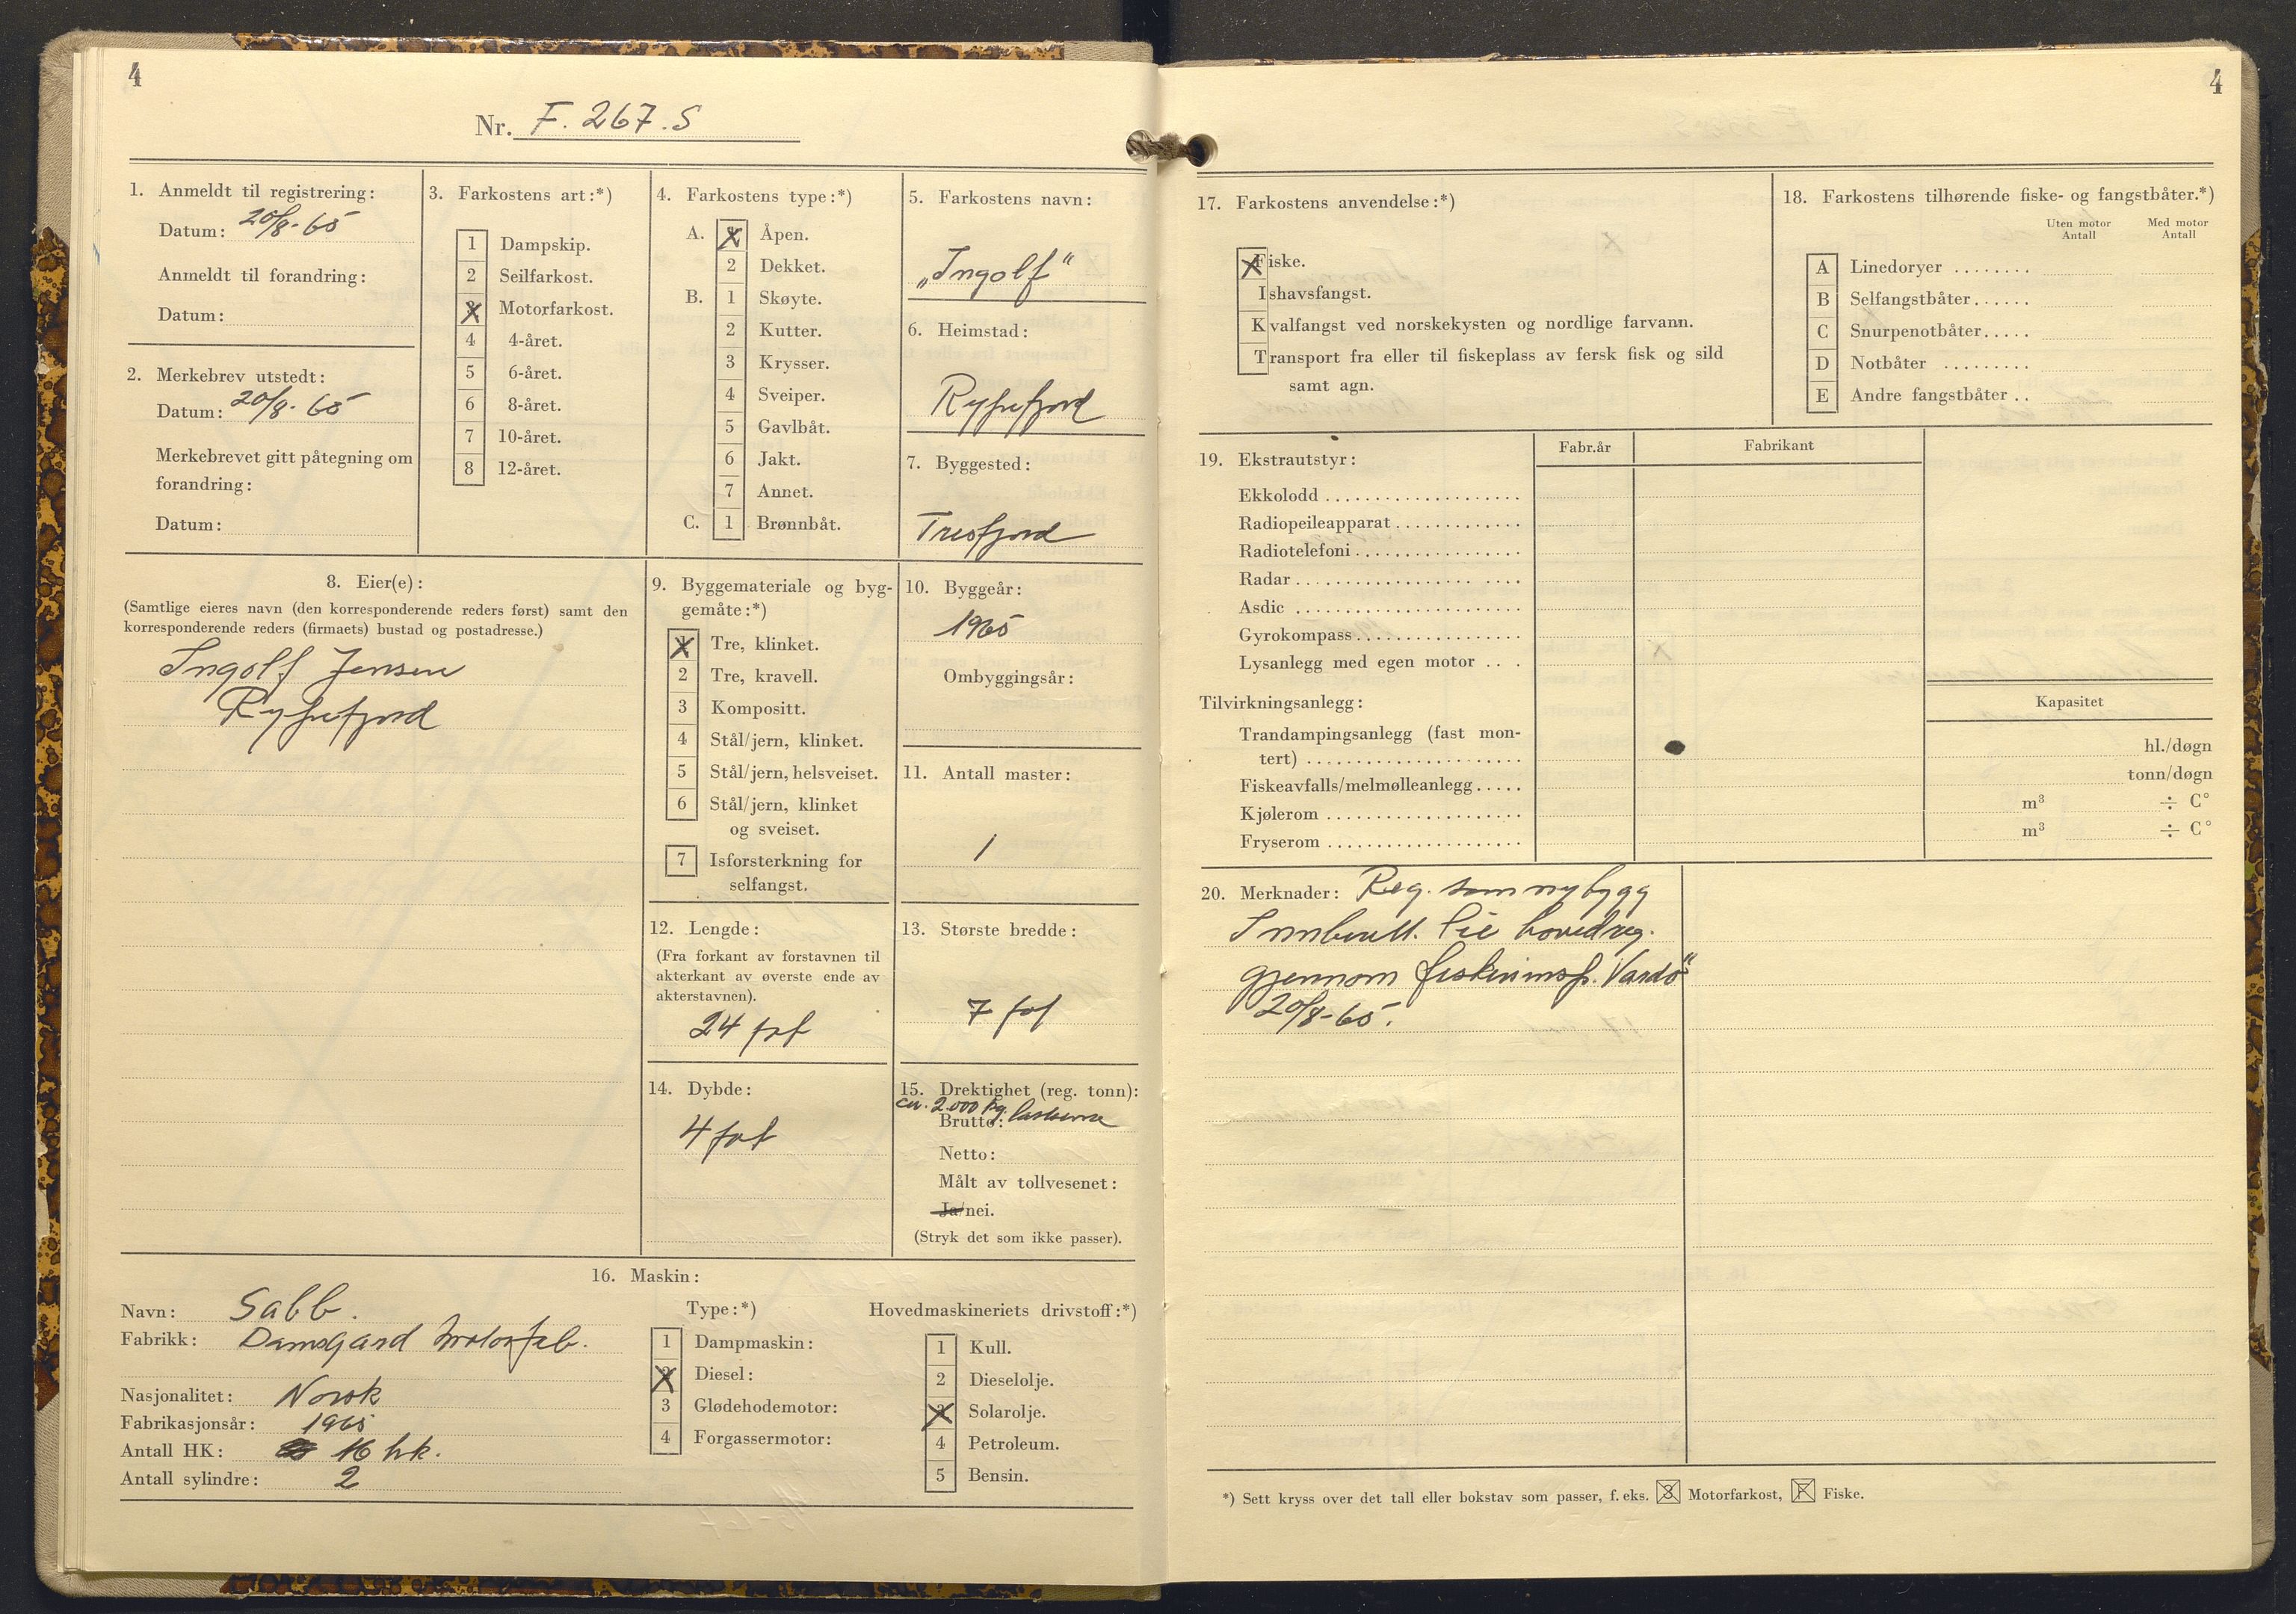 4
Nr. F. 267. S
1. Anmeldt til registrering:
Datum: 20/8-65
Anmeldt til forandring:
Datum:
2. Merkebrev utstedt:
Datum: 20/8-65
Merkebrevet gitt påtegning om
forandring:
Datum:
3. Farkostens art:*)
1 Dampskip.
2 Seilfarkost.
X Motorfarkost.
4 4-året.
5 6-året.
6 8-året.
7 10-året.
8 12-året.
4. Farkostens type:*)
A. X Åpen.
2 Dekket.
B. 1 Skøyte.
2 Kutter.
3 Krysser.
4 Sveiper.
5 Gavlbåt.
6 Jakt.
7 Annet.
C. 1 Brønnbåt.
5. Farkostens navn:
„Ingolf"
6. Heimstad:
Ryfrefjord
7. Byggested:
Tresfjord
8. Eier(e):
(Samtlige eieres navn (den korresponderende reders først) samt den
korresponderende reders (firmaets) bustad og postadresse.)
Ingolf Jensen
Ryfrefjord
9. Byggemateriale og byg-
gemåte:*)
X Tre, klinket.
2 Tre, kravell.
3 Kompositt.
4 Stål/jern, klinket.
5 Stål/jern, helsveiset.
6 Stål/jern, klinket
og sveiset.
7 Isforsterkning for
selfangst.
10. Byggeår:
1965
Ombyggingsår:
11. Antall master:
1
12. Lengde:
(Fra forkant av forstavnen til
akterkant av øverste ende av
akterstavnen).
24 fot
13. Største bredde:
7 fot
14. Dybde:
4 fot
15. Drektighet (reg. tonn):
ca. 2.000 kg. lasteevne
Brutto:
Netto:
Målt av tollvesenet:
Ja/nei.
(Stryk det som ikke passer).
16. Maskin:
Navn: Sabb.
Fabrikk: Damsgård Motorfab.
Nasjonalitet: Norsk
Fabrikasjonsår: 1965
Antall HK: 16 hk.
Antall sylindre: 2
Type:*)
1 Dampmaskin:
X Diesel:
3 Glødehodemotor:
4 Forgassermotor:
Hovedmaskineriets drivstoff:*)
1 Kull.
2 Dieselolje.
X Solarolje.
4 Petroleum.
5 Bensin.
4
17. Farkostens anvendelse:*)
Fiske.
Ishavsfangst.
Kvalfangst ved norskekysten og nordlige farvann.
Transport fra eller til fiskeplass av fersk fisk og sild
samt agn.
18. Farkostens tilhørende fiske- og fangstbåter.*)
Uten motor Med motor
Antall Antall
A Linedoryer ........
B Selfangstbåter......
C Snurpenotbåter.....
D Notbåter .........
E Andre fangstbåter ..
19. Ekstrautstyr:
Fabr.år Fabrikant
Ekkolodd
Radiopeileapparat
Radiotelefoni
Radar
Asdic
Gyrokompass
Lysanlegg med egen motor
Tilvirkningsanlegg:
Kapasitet
Trandampingsanlegg (fast mon-
tert) hl./døgn
Fiskeavfalls/melmølleanlegg..... tonn/døgn
Kjølerom m³ ÷ C°
Fryserom m³ ÷ C°
20. Merknader: Reg. som nybygg
Innberett. til hovedreg.
gjennom fiskerinsp. Vardø"
20/8-65.
*) Sett kryss over det tall eller bokstav som passer, f. eks. 3 Motorfarkost, F Fiske.